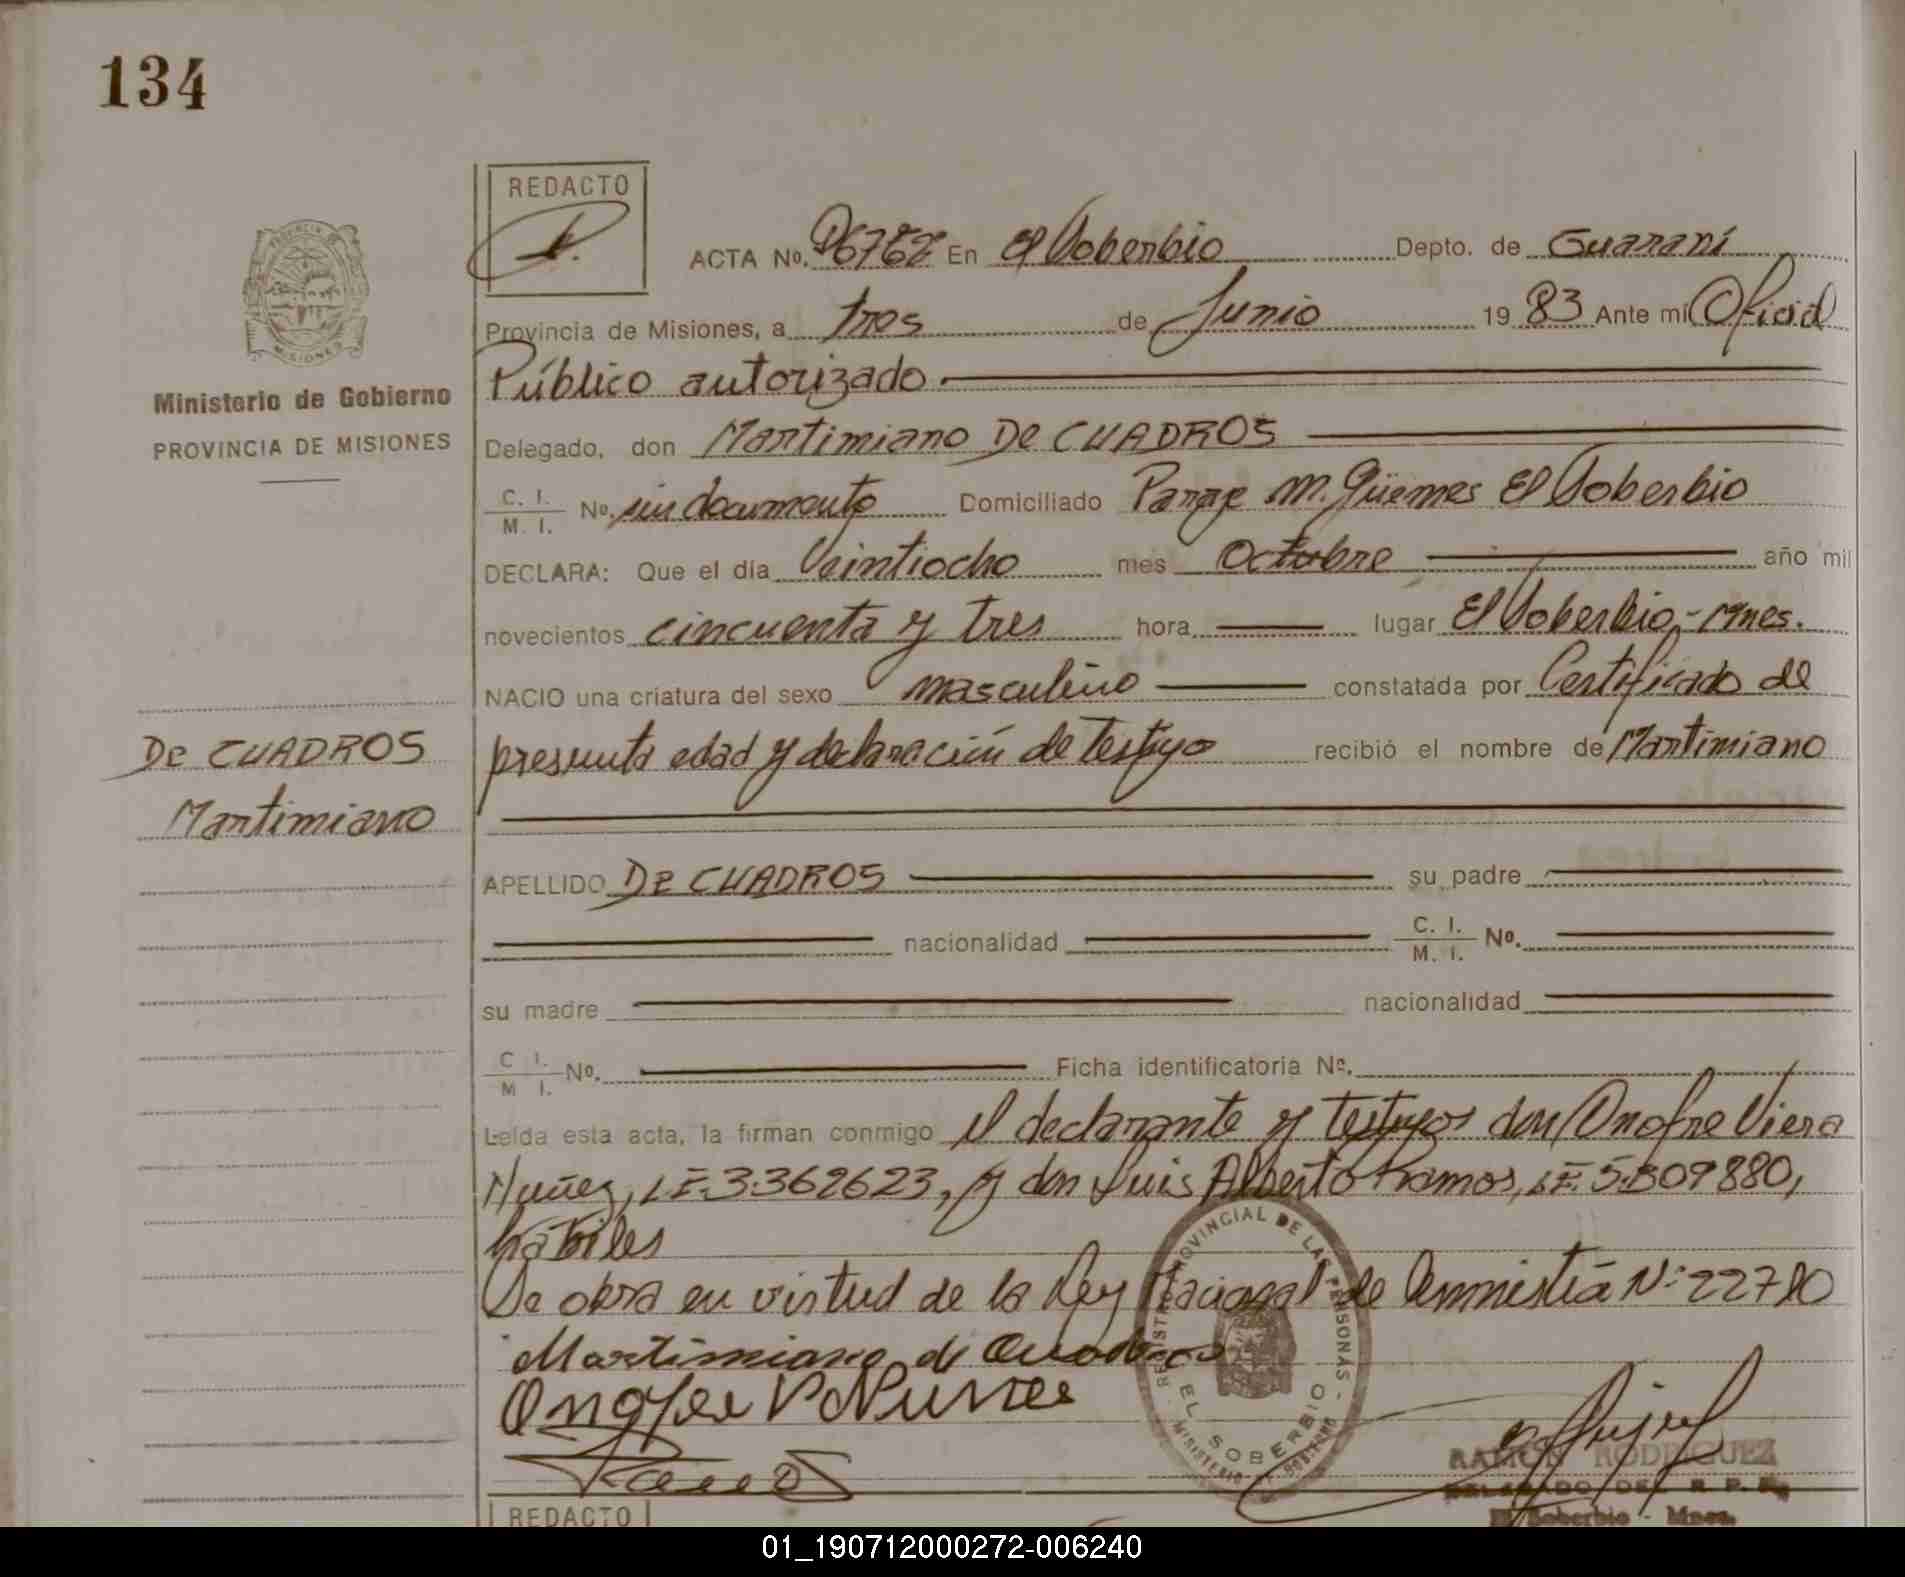 134
REDACTO
ACTA No. En El Soberbio Depto. de Guaraní
Provincia de Misiones, a tres de Junio 19 83 Ante mi Oficial
Público autorizado.
Ministerio de Gobierno
PROVINCIA DE MISIONES
Delegado, don Martimiano De CUADROS
C. I.
M. I. No. sin documento Domiciliado Paraje M. Güemes El Soberbio
DECLARA: Que el día Veintiocho mes Octubre año mil
novecientos cincuenta y tres hora lugar El Soberbio,- Mnes.
NACIO una criatura del sexo masculino constatada por Certificado de
presunta edad y declaración de testigo recibió el nombre de Martimiano
De CUADROS
Martimiano
APELLIDO De CUADROS su padre
nacionalidad C. I.
M. I. No.
su madre nacionalidad
C. I.
M. I. No. Ficha identificatoria No.
Leída esta acta, la firman conmigo el declarante y testigos don Onofre Viera
Nuñez, L.E. 3.362623, y don Luis Alberto Ramos, L.E. 5.309880,
hábiles
Se obra en virtud de la Ley Nacional de Amnistía Nº 22710
Martimiano de Cuadros
Ramos
REGISTRO PROVINCIAL DE LAS PERSONAS - EL SOBERBIO - MINISTERIO DE GOBIERNO
RAMON RODRIGUEZ
DELEGADO DEL R. P. P.
El Soberbio - Mnes.
REDACTO
01_190712000272-006240